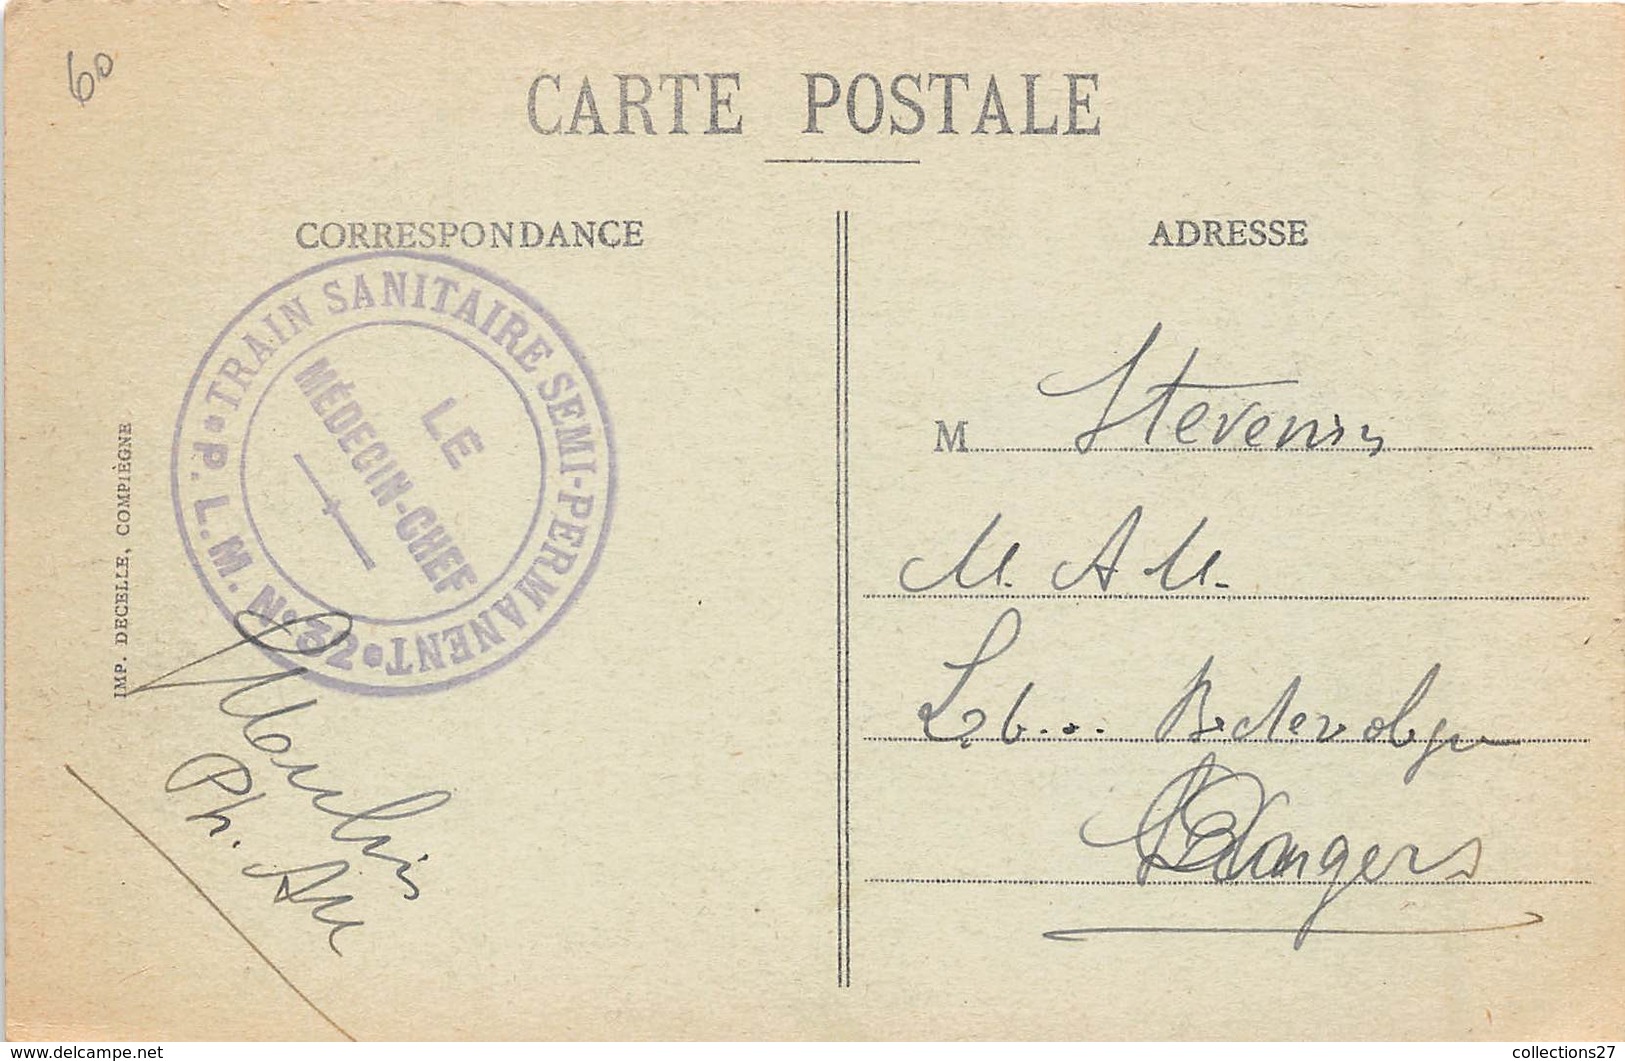 60
CARTE POSTALE
CORRESPONDANCE
TRAIN SANITAIRE SEMI-PERMANENT
P.L.M. N° 32
LE
MÉDECIN-CHEF
IMP. DECELLE, COMPIÈGNE
Ph. Au
ADRESSE
M Stevenin
M. A M.
Angers
www.delcampe.net
collections27